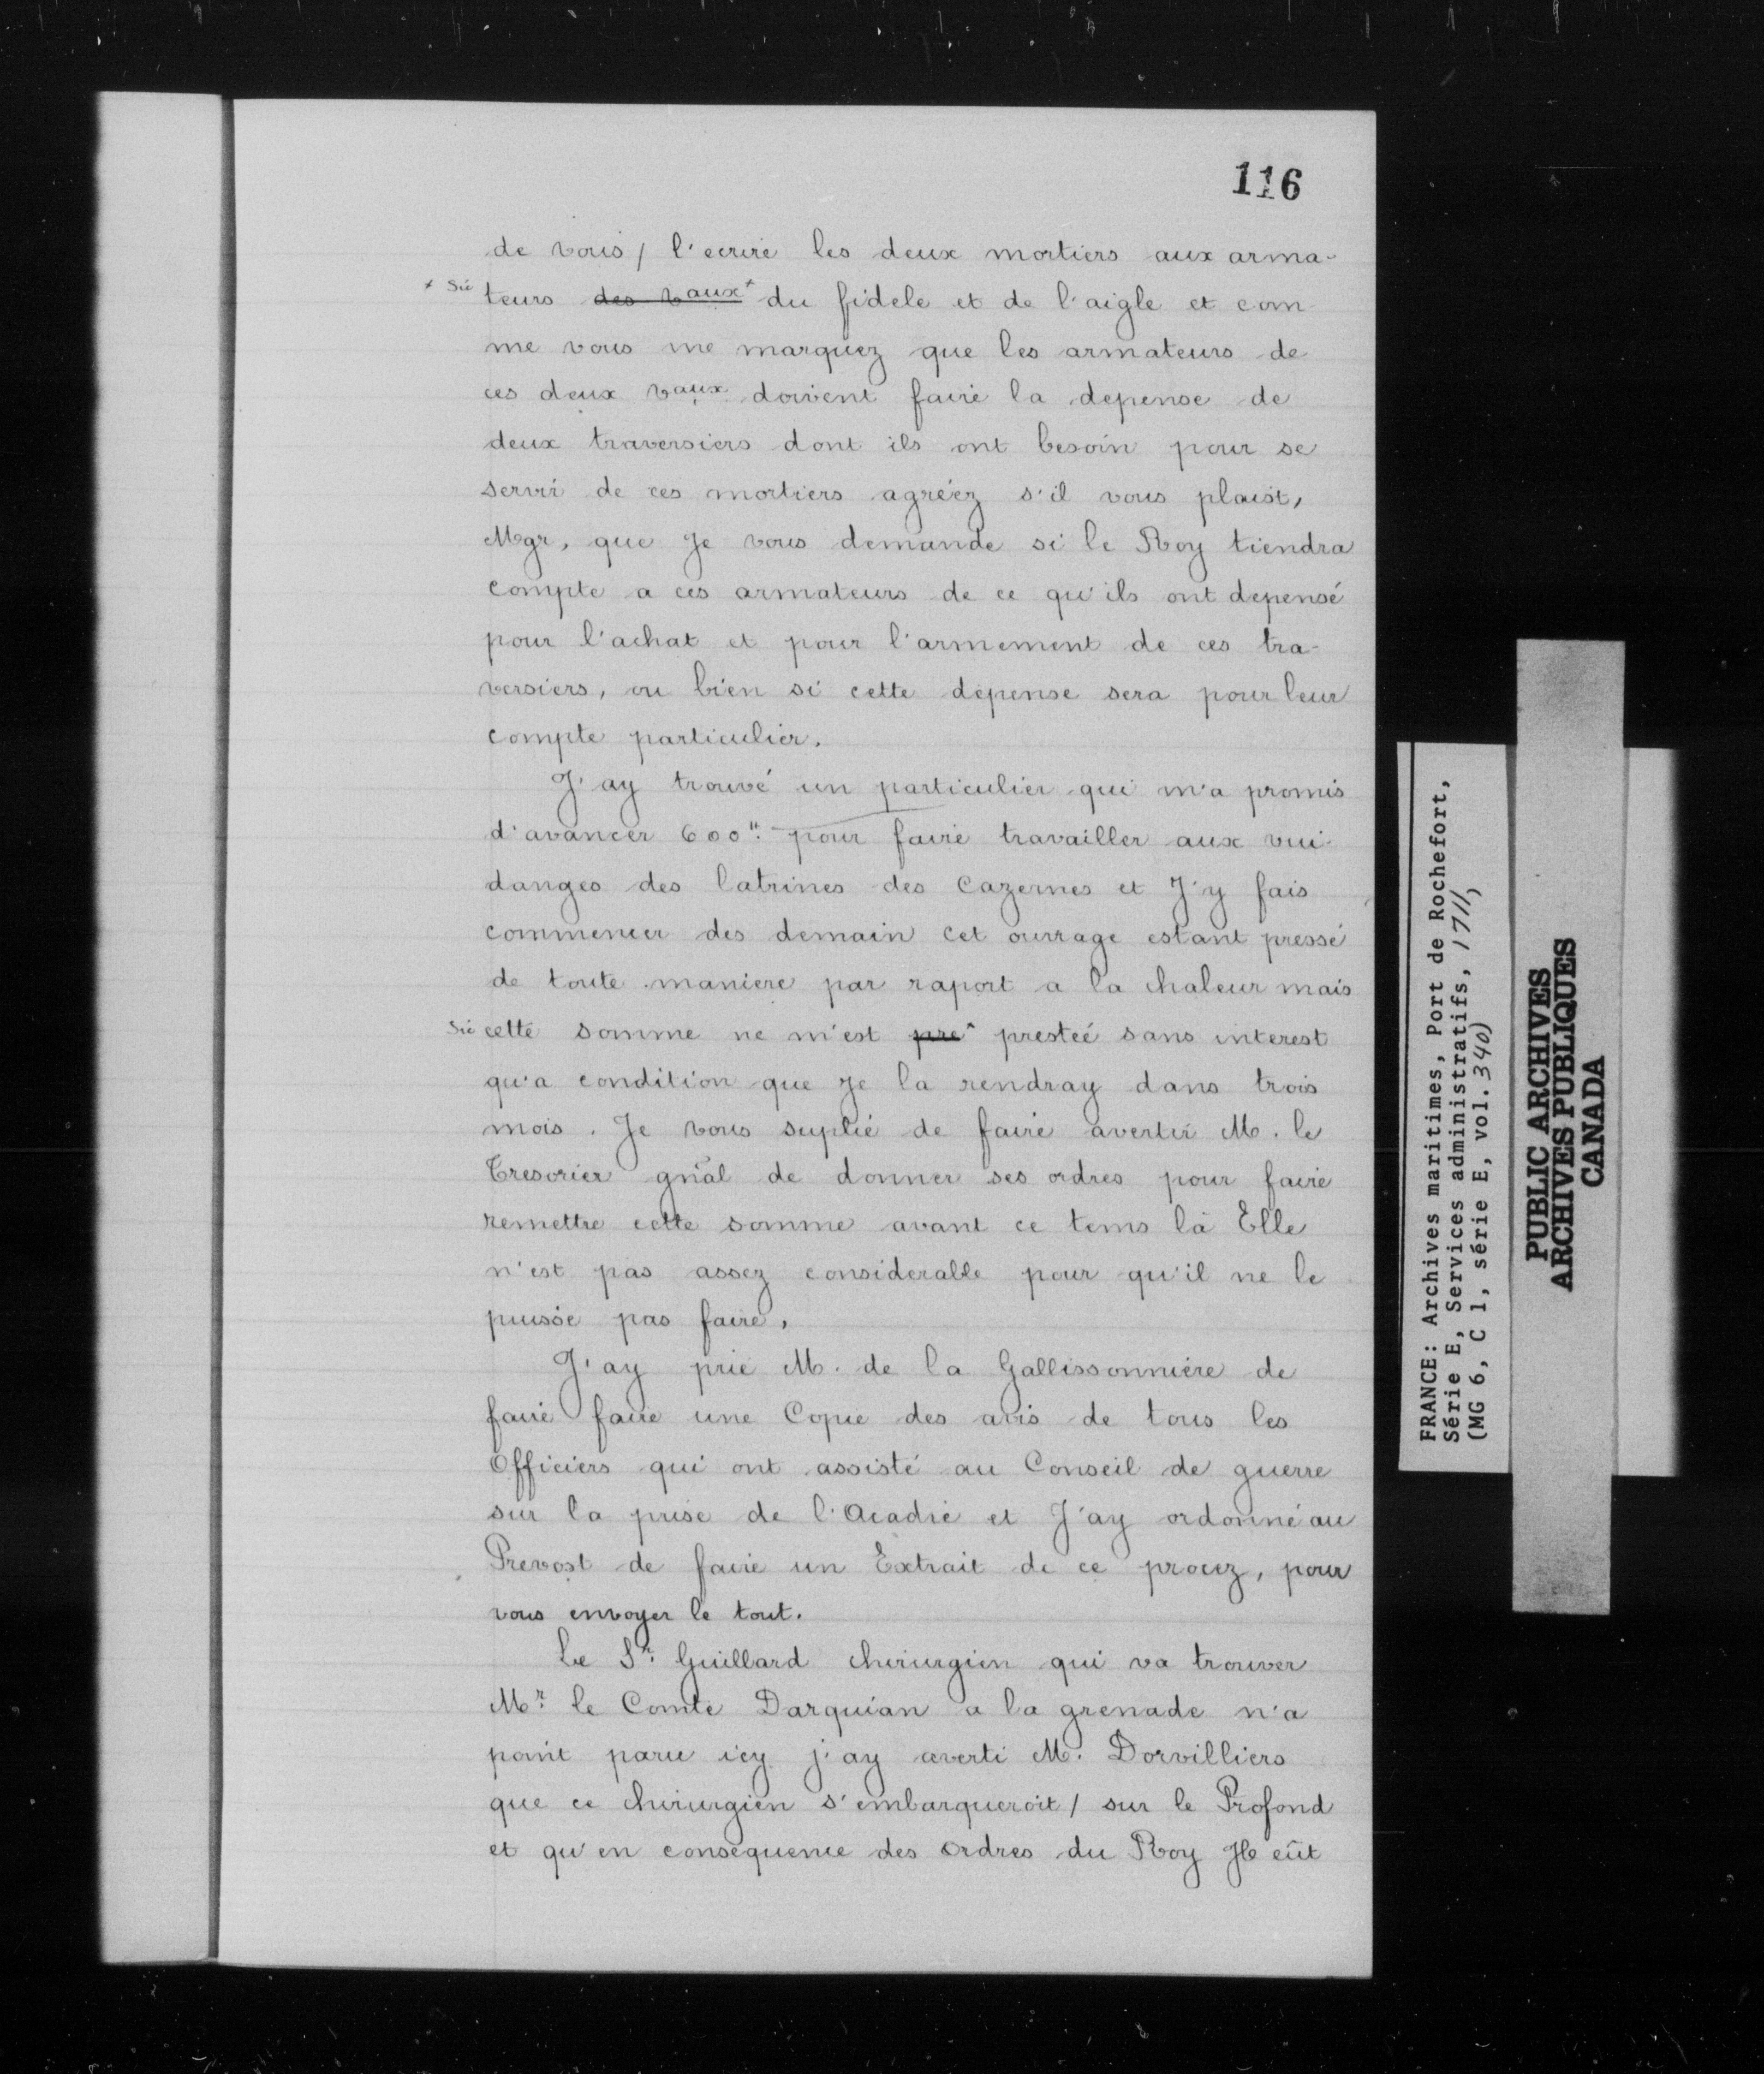 116
de vous / l'ecrire les deux mortiers aux arma-
* Sic teurs des vaux* du fidele et de l'aigle et com-
me vous me marquez que les armateurs de
ces deux vaux doivent faire la depense de
deux traversiers dont ils ont besoin pour se
servir de ces mortiers agréez s'il vous plaist,
Mgr, que Je vous demande si le Roy tiendra
compte a ces armateurs de ce qu'ils ont depensé
pour l'achat et pour l'armement de ces tra-
versiers, ou bien si cette depense sera pour leur
compte particulier.
J'ay trouvé un particulier qui m'a promis
d'avancer 600ᵗᵗ. pour faire travailler aux vui-
danges des latrines des Cazernes et J'y fais
commencer des demain cet ouvrage estant pressé
de toute maniere par raport a la chaleur mais
Sic cette somme ne m'est pre* prestée sans interest
qu'a condition que Je la rendray dans trois
mois. Je vous suplie de faire avertir M. le
Tresorier gñal de donner ses ordres pour faire
remettre cette somme avant ce tems là Elle
n'est pas assez considerable pour qu'il ne le
puisse pas faire.
J'ay prié M. de la Gallissonniére de
faire faire une Copie des avis de tous les
Officiers qui ont assisté au Conseil de guerre
sur la prise de l'Acadie et J'ay ordonné au
Prevost de faire un Extrait de ce procez, pour
vous envoyer le tout.
Le Sr. Guillard chirurgien qui va trouver
Mr. le Comte Darquian a la grenade n'a
point paru icy j'ay averti M. Dorvilliers
que ce chirurgien s'embarqueroit / sur le Profond
et qu'en consequence des Ordres du Roy Il eût
FRANCE: Archives maritimes, Port de Rochefort,
Série E, Services administratifs, 1711,
(MG 6, C 1, série E, vol. 340)
PUBLIC ARCHIVES
ARCHIVES PUBLIQUES
CANADA